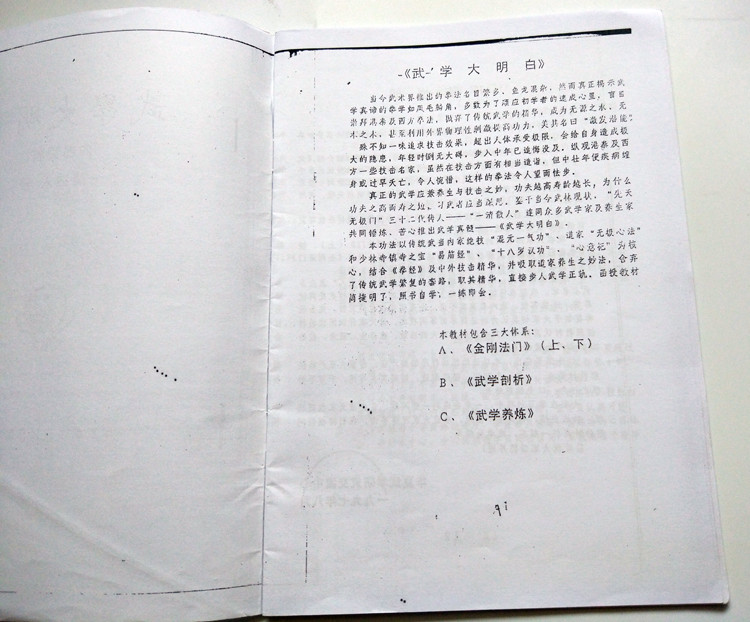 《武学大明白》
当今武术界推出的拳法名目繁多,鱼龙混杂,然而真正揭示武
学真谛的拳学如凤毛麟角,多数为了顺应初学者的速成心里,盲目
崇拜港泰及西方拳法,抛弃了传统武学的精华,成为无源之水、无
本之木,甚至利用外界物理性刺激提高功力,美其名曰“激发潜能”
殊不知一味追求技击效果,超出人体承受极限,会给自身造成极
大的隐患,年轻时倒无大碍,步入中年已追悔没及,纵观港泰及西
方一些技击名家,虽然在技击方面有相当造诣,但中壮年便疾病缠
身或过早夭亡,令人惋惜,这样的拳法令人望而怯步。
真正的武学应兼养生与技击之妙,功夫越高寿龄越长,为什么
功夫之高而寿之短,习武者应当深思。鉴于当今武林现状,“先天
无极门”三十二代传人——“一清散人”连同众多武学家及养生家
共同锤炼、苦心推出武学真髓——《武学大明白》。
本功法以传统武当内家绝技“混元一气功”、道家“无极心法”
和少林寺镇寺之宝“易筋经”、“十八罗汉功”、“心意记”为核
心,结合《拳经》及中外技击精华,并吸取道家养生之妙法,仓弃
了传统武学繁复的套路,取其精华,直接步入武学正轨。函授教材
简捷明了,照书自学,一练即会。
本教材包含三大体系:
A、《金刚法门》(上、下)
B、《武学剖析》
C、《武学养炼》